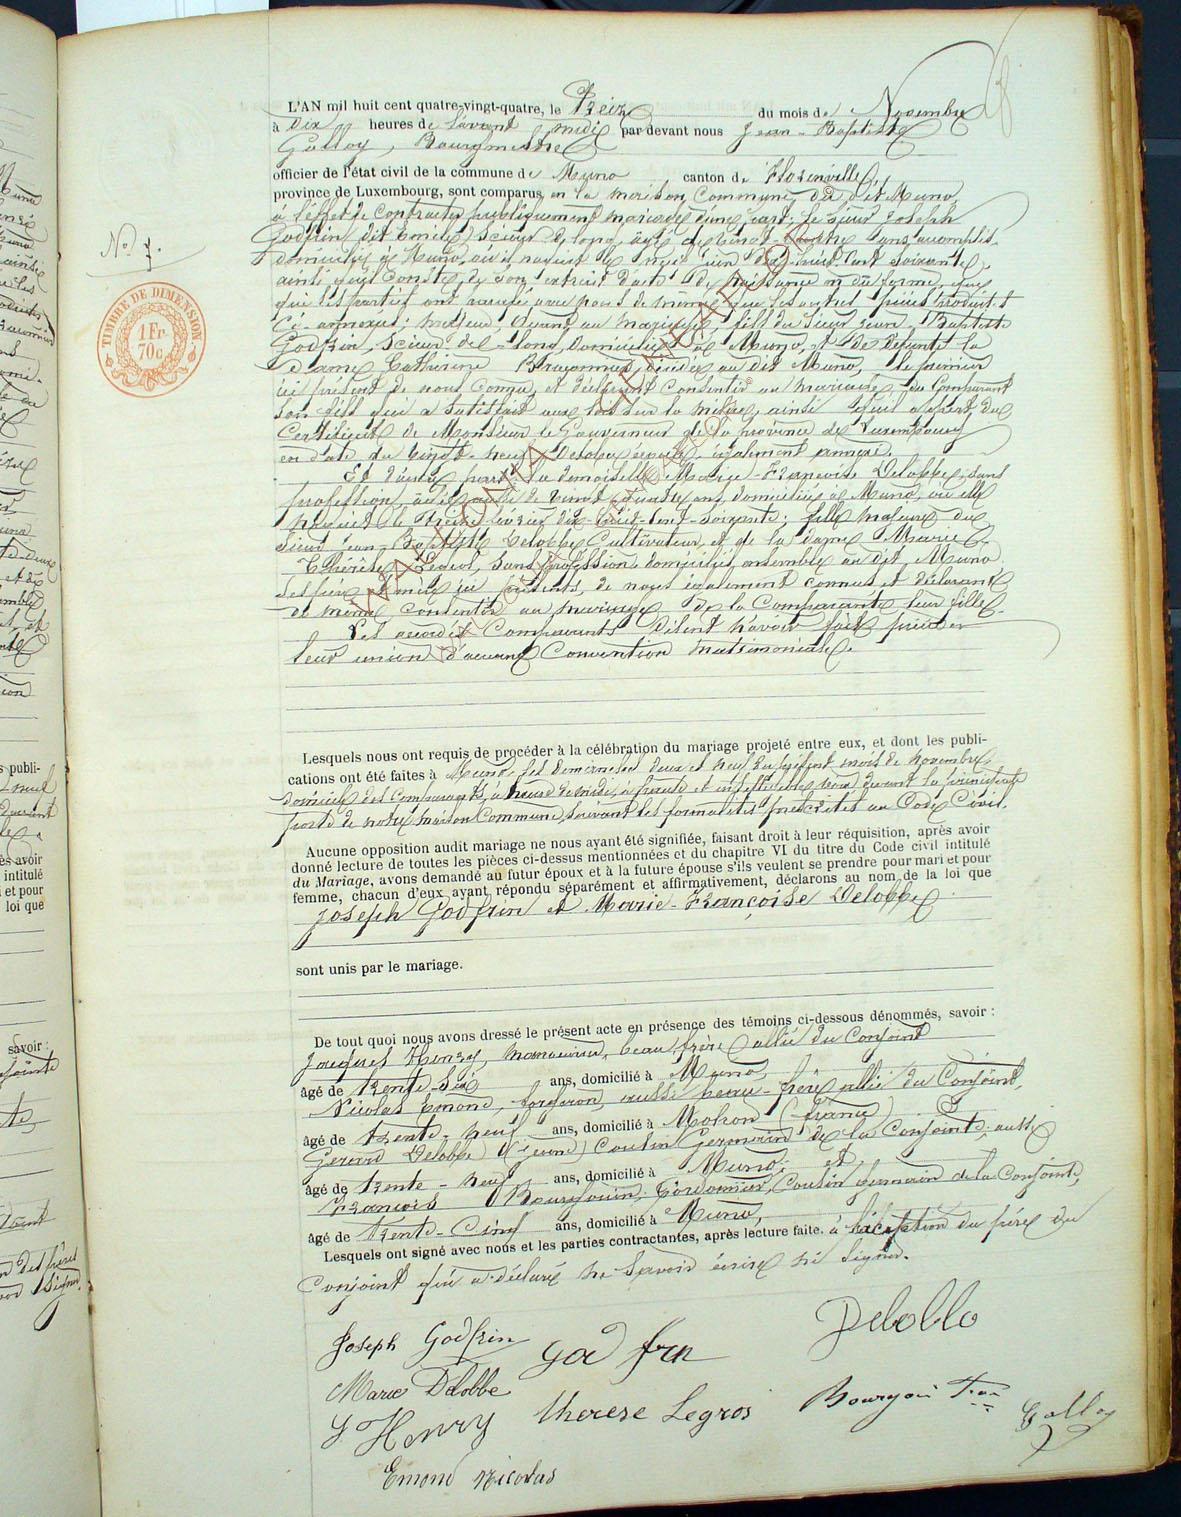 L'AN mil huit cent quatre-vingt-quatre, le Treize du mois de Novembre
à Dix heures de l'avant midi par devant nous Jean-Baptiste
Galloy, Bourgmestre
officier de l'état civil de la commune de Muno canton de Florenville,
province de Luxembourg, sont comparus en la maison Commune du dit Muno,
à l'effet de contracter publiquement mariage d'une part; Le sieur Joseph
Godfrin (dit Emile) Scieur de long, âgé de vingt-quatre ans accomplis,
domicilié à Muno, où il naquit le dix huit cent soixante,
ainsi qu'il conste de son extrait d'acte de naissance en due forme,
que les parties ont de même que les autres pièces produites
ci-annexées; majeur, quant au mariage, fils du sieur Jean-Baptiste
Godfrin, scieur de long, domicilié à Muno, et de défunte la
dame Catherine décédée au dit Muno, le premier
ici présent de nous connu, et déclarant consentir au mariage du Comparant
son fils qui a satisfait aux lois sur la milice, ainsi qu'il appert du
Certificat de Monsieur le Gouverneur de la province de Luxembourg
en date du vingt-neuf Octobre également annexé.
Et d'autre part: la demoiselle Marie-Françoise Delobbe, sans
profession, âgée aussi de vingt quatre ans, domiciliée à Muno, où elle
naquit le treize février dix-huit-cent-soixante; fille majeure du
sieur Jean-Baptiste Delobbe Cultivateur, et de la dame Marie-
Thérèse Legros, sans profession, domiciliés ensemble au dit Muno,
ses père et mère ici présents, de nous également connus et déclarant
de même consentir au mariage de la Comparante leur fille.
Les accordés Comparants disent n'avoir fait précéder
leur union d'aucune Convention matrimoniale.
N° 7.
TIMBRE DE DIMENSION
1 Fr.
70 c
Lesquels nous ont requis de procéder à la célébration du mariage projeté entre eux, et dont les publi-
cations ont été faites à Muno, les dimanches deux et neuf du présent mois de novembre,
domicile des Comparants, à heure de midi, devant la principale
porte de notre maison Commune, suivant les formalités prescrites au Code Civil.
Aucune opposition audit mariage ne nous ayant été signifiée, faisant droit à leur réquisition, après avoir
donné lecture de toutes les pièces ci-dessus mentionnées et du chapitre VI du titre du Code civil intitulé
du Mariage, avons demandé au futur époux et à la future épouse s'ils veulent se prendre pour mari et pour
femme, chacun d'eux ayant répondu séparément et affirmativement, déclarons au nom de la loi que
Joseph Godfrin et Marie-Françoise Delobbe
sont unis par le mariage.
De tout quoi nous avons dressé le présent acte en présence des témoins ci-dessous dénommés, savoir :
Jacques Henry, manœuvre, beau frère allié du Conjoint
âgé de trente-six ans, domicilié à Muno,
Nicolas Emond, forgeron, aussi beau-frère allié du Conjoint,
âgé de trente-neuf ans, domicilié à Mohon (France)
Gérard Delobbe (jeune) Cousin Germain de la Conjointe, aussi
âgé de trente-neuf ans, domicilié à Muno, et
François Bourgouin, Cordonnier, Cousin germain de la Conjointe,
âgé de trente-cinq ans, domicilié à Muno,
Lesquels ont signé avec nous et les parties contractantes, après lecture faite. à l'exception du père du
Conjoint qui a déclaré ne savoir écrire ni signer.
Joseph Godfrin
God frn
Delobbo
Marie Delobbe
J Henry
therese Legros
Bourgoin Fran
Galloy
Emond Nicolas